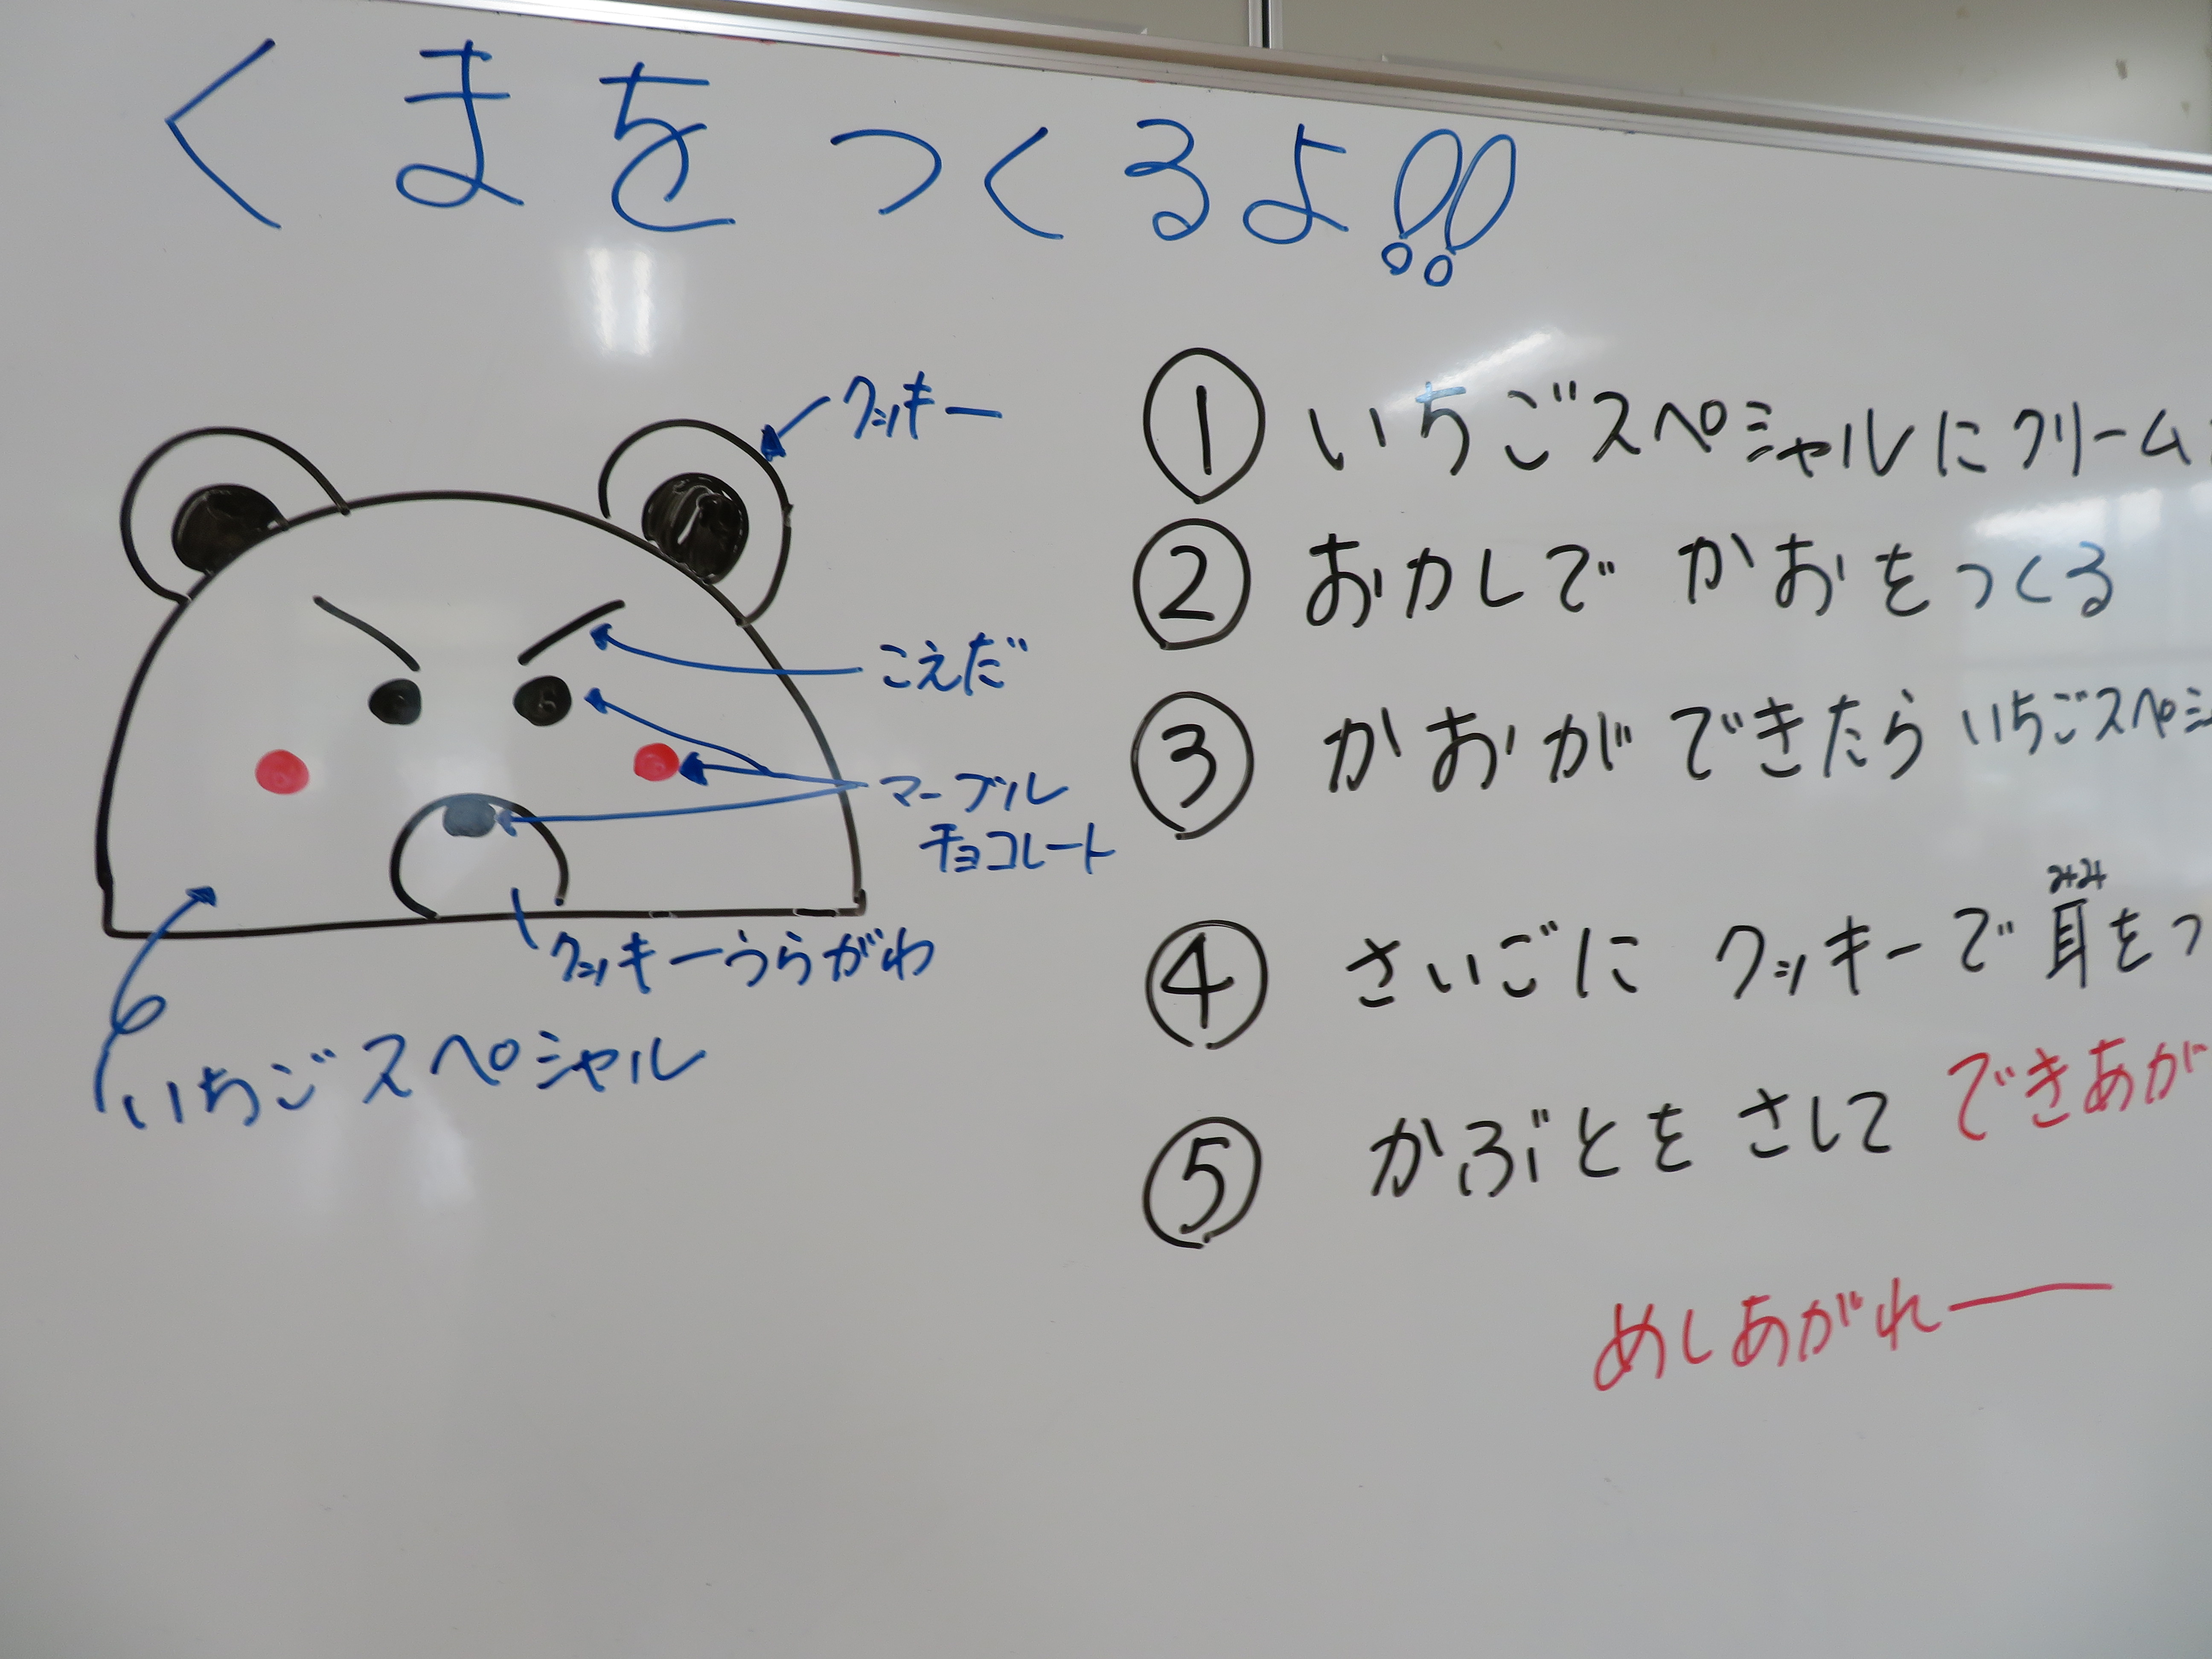 くまをつくるよ!!
クッキー
こえだ
マーブル
チョコレート
クッキーうらがわ
いちごスペシャル
① いちごスペシャルにクリーム
② おかしで かおをつくる
③ かおができたら いちごスペシ
④ さいごに クッキーで耳をつ
みみ
⑤ かぶとを さして できあが
めしあがれー